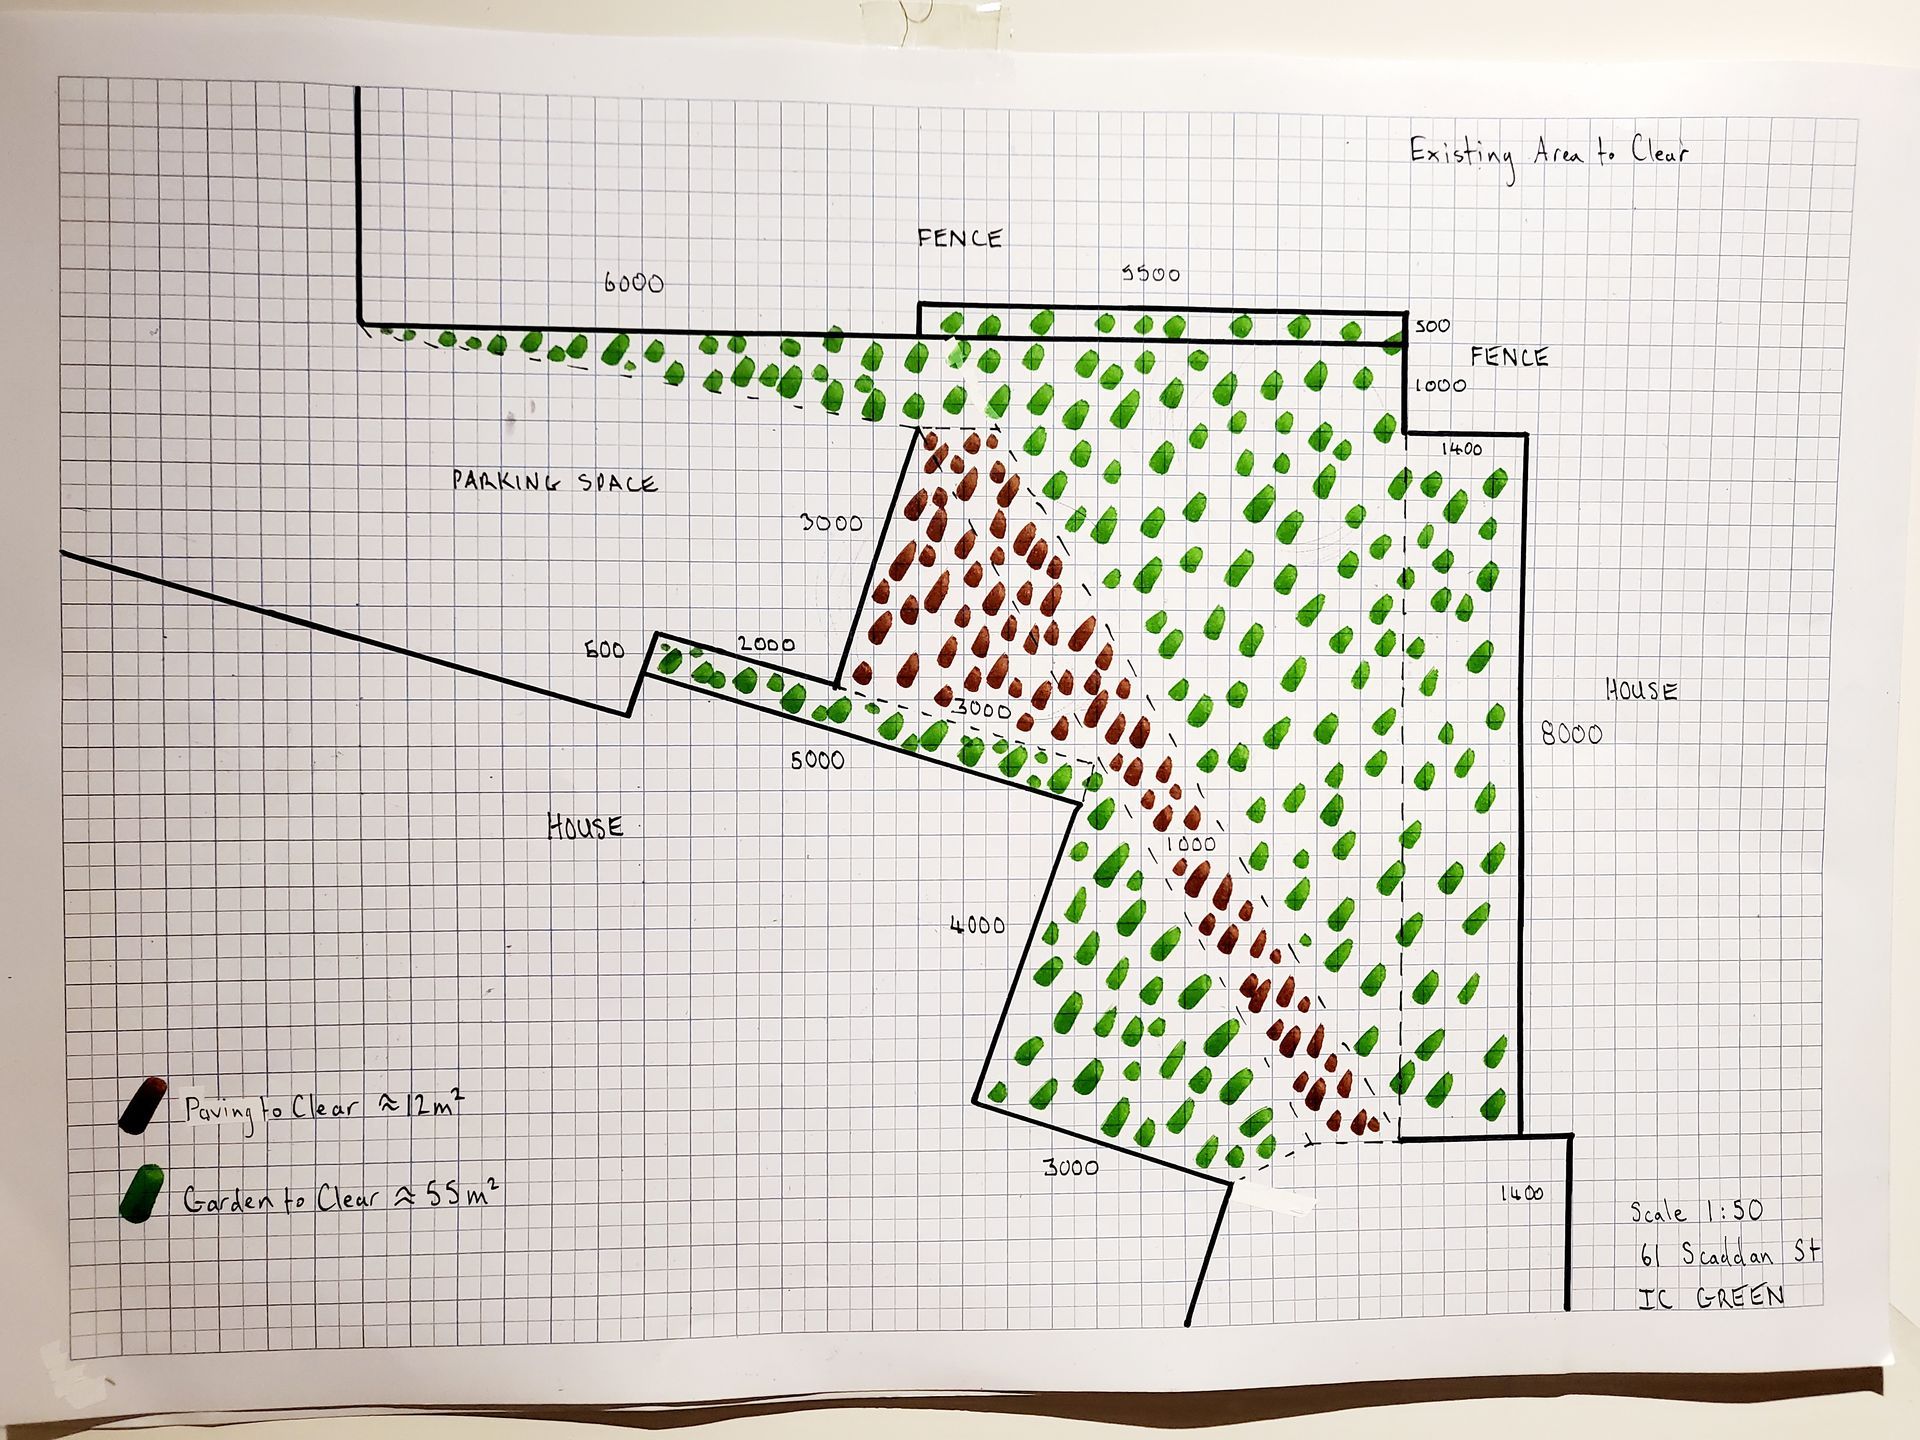 Existing Area to Clear
FENCE
5500
6000
500
FENCE
1000
1400
PARKING SPACE
3000
500
2000
HOUSE
3000
8000
5000
HOUSE
1000
4000
Paving to Clear ≈ 12m²
3000
Garden to Clear ≈ 55m²
1400
Scale 1:50
61 Scaddan St
IC GREEN